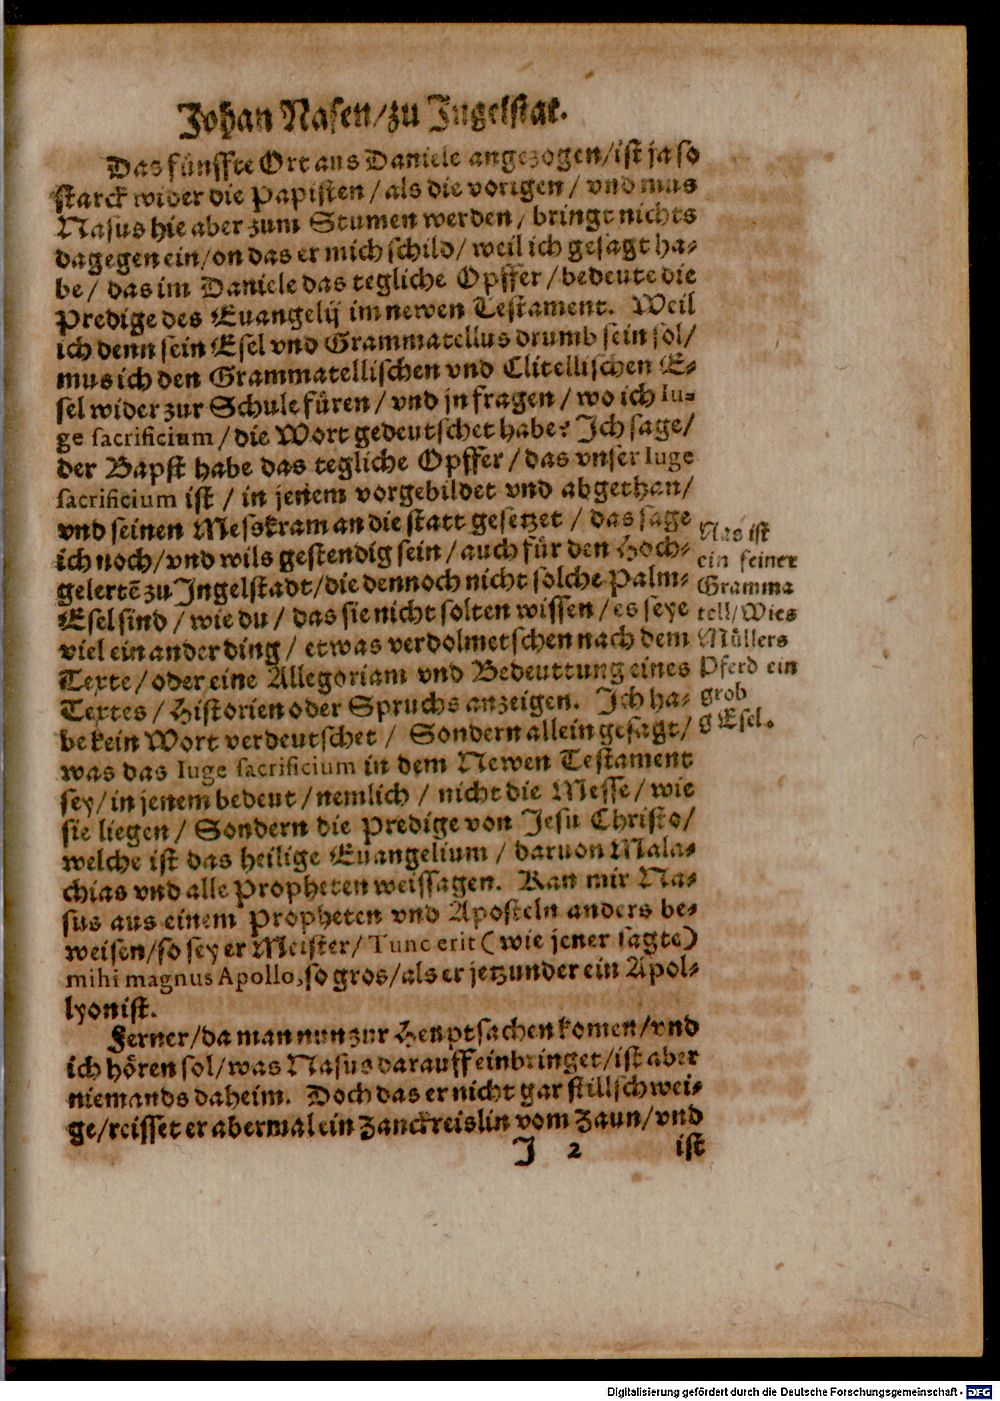 Johan Nasen/zu Jngelstat.
Das fünffte Ort aus Daniele angezogen/ist ja so
starck wider die Papisten/als die vorigen/vnd mus
Nasus hie aber zum Stumen werden/bringt nichts
dagegen ein/on das er mich schild/weil ich gesagt ha-
be/das im Daniele das tegliche Opffer/bedeute die
Predige des Euangelij im newen Testament. Weil
ich denn sein Esel vnd Grammatellus drumb sein sol/
mus ich den Grammatellischen vnd Clitellischen E-
sel wider zur Schule füren/vnd jn fragen/wo ich Iu-
ge sacrificium/die Wort gedeutschet habe? Jch sage/
der Bapst habe das tegliche Opffer/das vnser Iuge
sacrificium ist/in jenem vorgebildet vnd abgethan/
vnd seinen Messkram an die statt gesetzet/das sage
ich noch/vnd wils gestendig sein/auch für den Hoch-
gelertē zu Jngelstadt/die dennoch nicht solche Palm-
Esel sind/wie du/das sie nicht solten wissen/es seye
viel ein ander ding/etwas verdolmetschen nach dem
Texte/oder eine Allegoriam vnd Bedeuttung eines
Textes/Historien oder Spruchs anzeigen. Jch ha-
be kein Wort verdeutschet/Sondern allein gesagt/
was das Iuge sacrificium in dem Newen Testament
sey/in jenem bedeut/nemlich/nicht die Messe/wie
sie liegen/Sondern die Predige von Jesu Christo/
welche ist das heilige Euangelium/daruon Mala-
chias vnd alle Propheten weissagen. Kan mir Na-
sus aus einem Propheten vnd Aposteln anders be-
weisen/so sey er Meister/Tunc erit (wie jener sagte)
mihi magnus Apollo, so gros/als er jetzunder ein Apol-
lyon ist.
Ferner/da man nun zur Heuptsachen komen/vnd
ich hören sol/was Nasus darauff einbringet/ist aber
niemands daheim. Doch das er nicht gar stillschwei-
ge/reisset er abermal ein Zanckreislin vom Zaun/vnd
J 2 ist
Nas ist
ein feiner
Gramma
tell/Wies
Müllers
Pferd ein
grob
Esel.
Digitalisierung gefördert durch die Deutsche Forschungsgemeinschaft - DFG